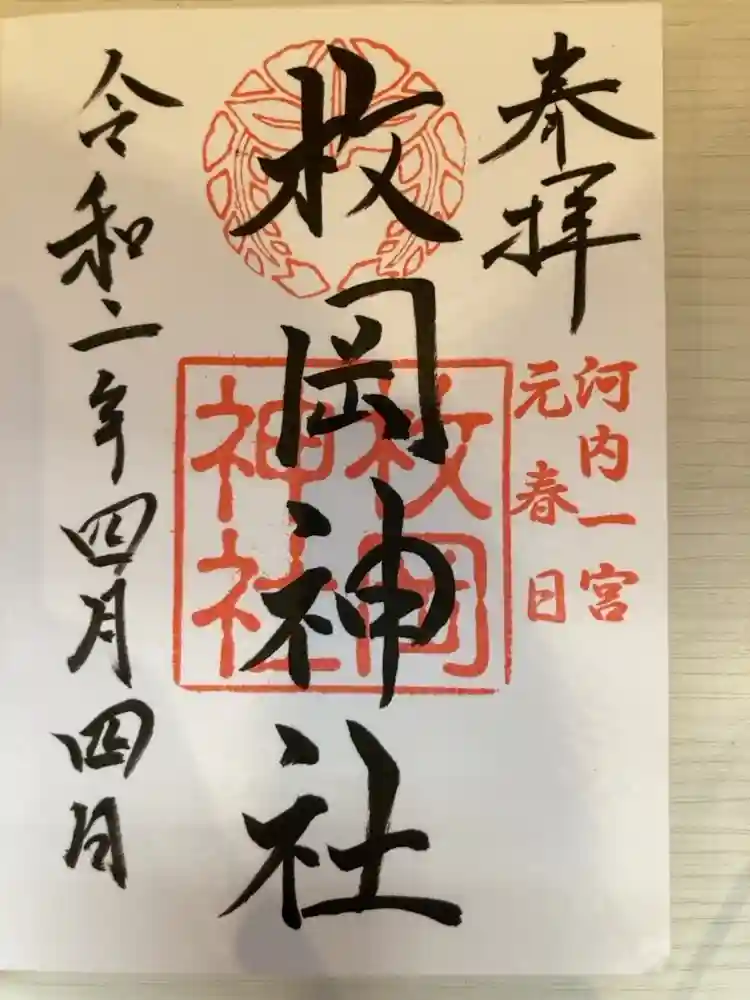 奉拝
河内一宮
元春日
枚岡神社
枚岡
神社
令和二年四月四日